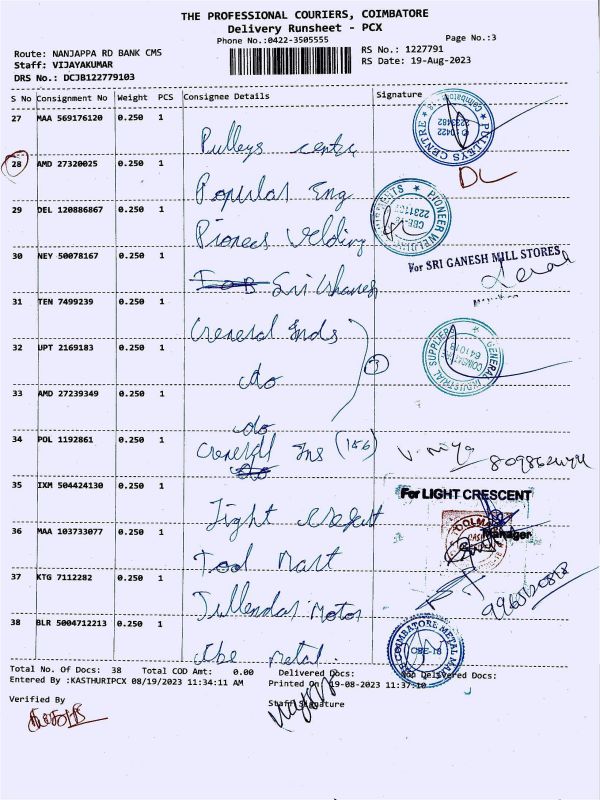 THE PROFESSIONAL COURIERS, COIMBATORE
Delivery Runsheet - PCX
Phone No.:0422-3505555
Page No.:3
Route: NANJAPPA RD BANK CMS
RS No.: 1227791
Staff: VIJAYAKUMAR
RS Date: 19-Aug-2023
DRS No.: DCJB122779103
S No Consignment No Weight PCS Consignee Details Signature
27 MAA 569176120 0.250 1
Pulleys centre
PULLEYS CENTRE
28 AMD 27320025 0.250 1
DL
Popular Eng
29 DEL 120886867 0.250 1
Pioneer Welding
30 NEY 50078167 0.250 1
For SRI GANESH MILL STORES
Sri Ghanesh
31 TEN 7499239 0.250 1
General Inds
32 UPT 2169183 0.250 1
GENERAL INDUSTRIAL SUPPLIERS
do
3
33 AMD 27239349 0.250 1
do
34 POL 1192861 0.250 1
General Ins (156)
35 IXM 504424130 0.250 1
For LIGHT CRESCENT
Light
36 MAA 103733077 0.250 1
Manager
Tool Mart
37 KTG 7112282 0.250 1
Motor
38 BLR 5004712213 0.250 1
COIMBATORE METAL MART
CBE-18
Cbe metal.
Total No. Of Docs: 38 Total COD Amt: 0.00 Delivered Docs: Non Delivered Docs:
Entered By :KASTHURIPCX 08/19/2023 11:34:11 AM Printed On 19-08-2023 11:37:10
Verified By
Staff Signature